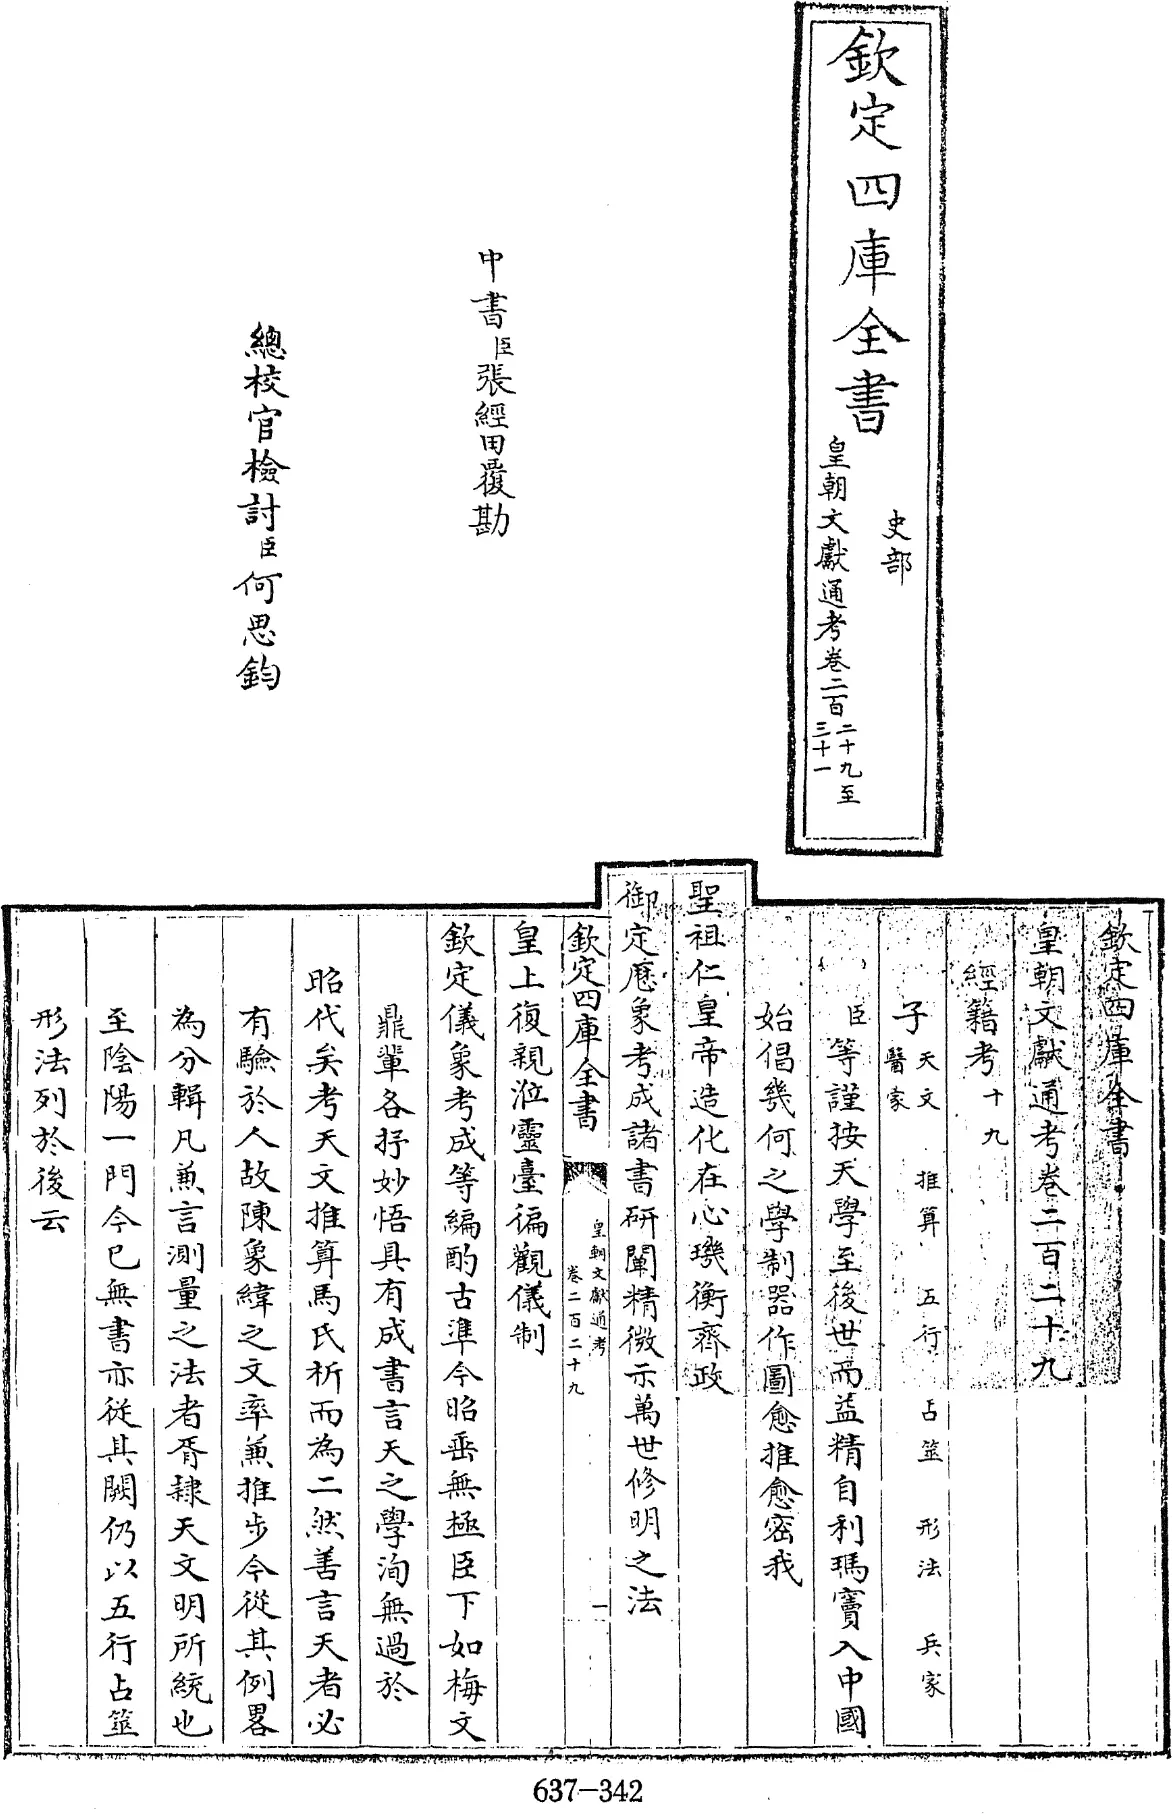 欽定四庫全書
史部
皇朝文獻通考卷二百二十九至三十一
中書臣張經田覆勘
總校官檢討臣何思鈞
欽定四庫全書
皇朝文獻通考卷二百二十九
經籍考十九
子天文 推算 五行 占筮 形法 兵家
醫家
臣等謹按天學至後世而益精自利瑪竇入中國
始倡幾何之學制器作圖愈推愈密我
聖祖仁皇帝造化在心璣衡齊政
御定厯象考成諸書研闡精微示萬世修明之法
欽定四庫全書
皇朝文獻通考
卷二百二十九
一
皇上復親涖靈臺徧觀儀制
欽定儀象考成等編酌古準今昭垂無極臣下如梅文
鼎輩各抒妙悟具有成書言天之學洵無過於
昭代矣考天文推算馬氏析而為二然善言天者必
有驗於人故陳象緯之文率兼推步今從其例畧
為分輯凡兼言測量之法者胥隸天文明所統也
至陰陽一門今已無書亦從其闕仍以五行占筮
形法列於後云
637-342